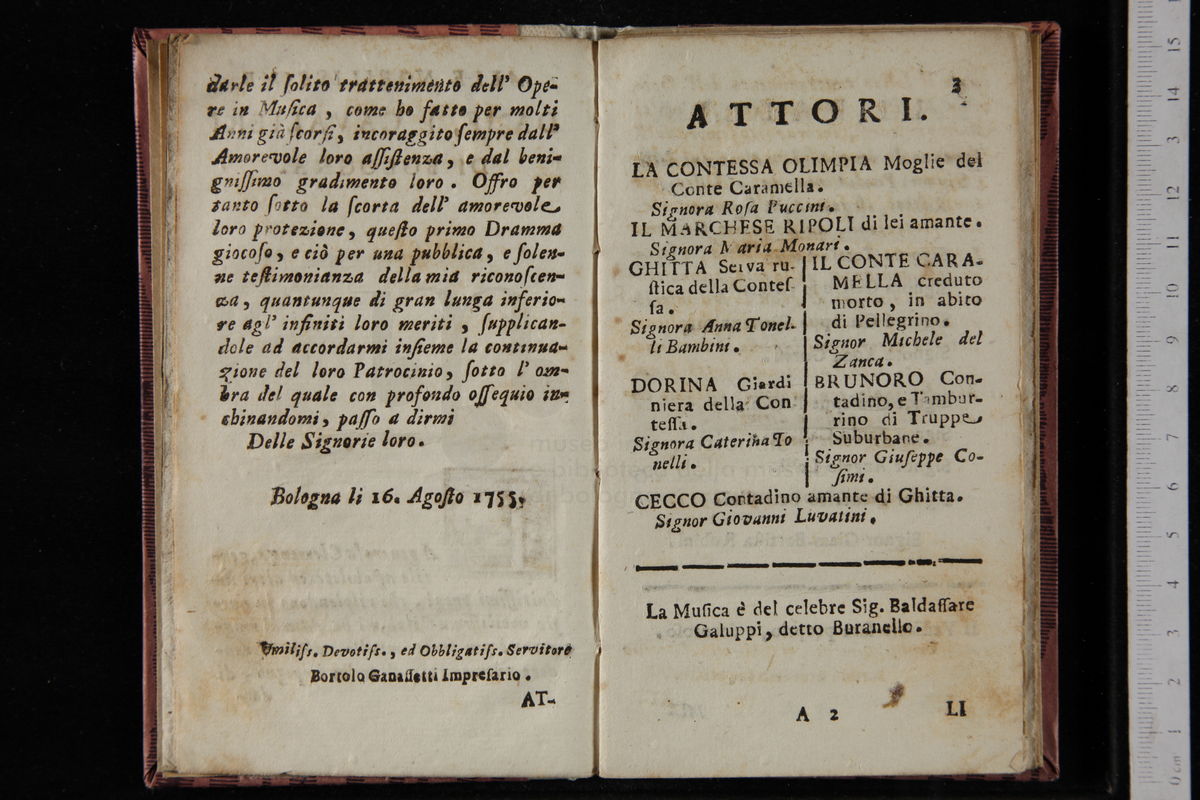 darle il ſolito trattenimento dell' Ope-
re in Muſica , come ho fatto per molti
Anni già ſcorſi, incoraggito ſempre dall'
Amorevole loro aſſiſtenza, e dal beni-
gniſſimo gradimento loro . Offro per
tanto ſotto la ſcorta dell' amorevole
loro protezione, queſto primo Dramma
giocoſo, e ciò per una pubblica, e ſolen-
ne teſtimonianza della mia riconoſcen-
za, quantunque di gran lunga inferio-
re agl' infiniti loro meriti , ſupplican-
dole ad accordarmi inſieme la continua-
zione del loro Patrocinio, ſotto l' om-
bra del quale con profondo oſſequio in-
chinandomi, paſſo a dirmi
Delle Signorie loro.
Bologna li 16. Agoſto 1755.
Umiliſs. Devotiſs., ed Obbligatiſs. Servitore
Bortolo Ganaſſetti Impreſario .
AT-
3
ATTORI.
LA CONTESSA OLIMPIA Moglie del
Conte Caramella.
Signora Roſa Puccini.
IL MARCHESE RIPOLI di lei amante.
Signora Maria Monari.
GHITTA Serva ru-
ſtica della Conteſ-
ſa.
Signora Anna Tonel-
li Bambini.
DORINA Giardi
niera della Con
teſſa.
Signora Caterina To
nelli.
IL CONTE CARA-
MELLA creduto
morto, in abito
di Pellegrino.
Signor Michele del
Zanca.
BRUNORO Con-
tadino, e Tambur-
rino di Truppe
Suburbane.
Signor Giuſeppe Co-
ſimi.
CECCO Contadino amante di Ghitta.
Signor Giovanni Luvatini.
La Muſica è del celebre Sig. Baldaſſare
Galuppi, detto Buranello.
A 2
LI
15
14
13
12
11
10
9
8
7
6
5
4
3
2
1
0 cm